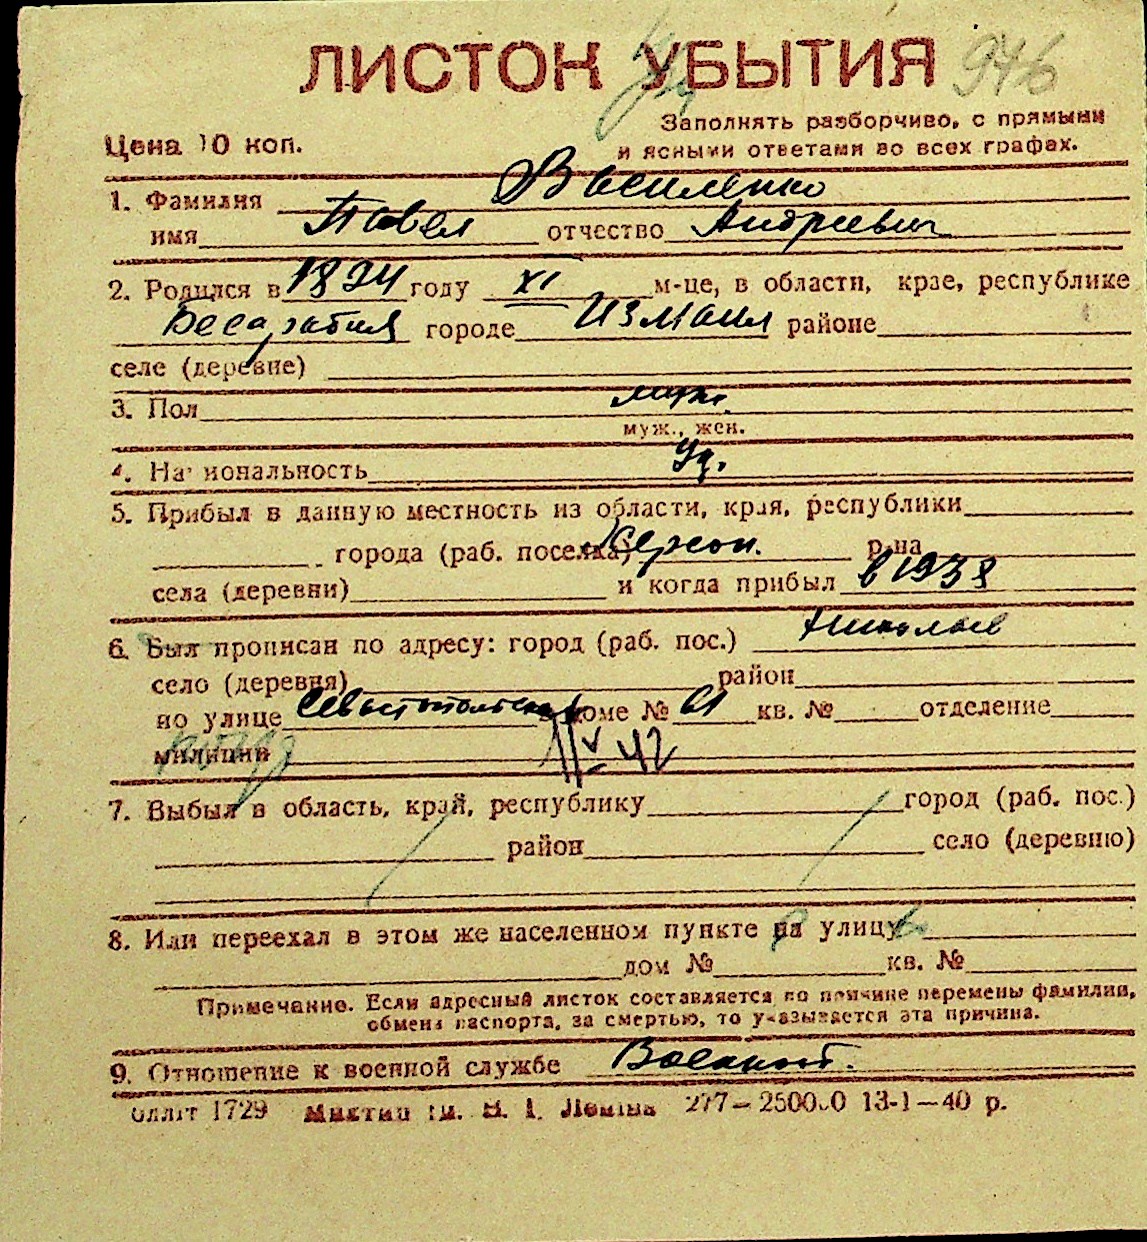 ЛИСТОК УБЫТИЯ 946
Заполнять разборчиво, с прямыми
Цена 10 коп. и ясными ответами во всех графах.
1. Фамилия Василенко
имя Павел отчество Андреевич
2. Родился в 1894 году XI м-це, в области, крае, республике
Бесарабия городе Измаил районе
селе (деревне)
3. Пол муж.
муж., жен.
4. Национальность
5. Прибыл в данную местность из области, края, республики
города (раб. поселка) Херсон. р-на
села (деревни) и когда прибыл в 1938
6. Был прописан по адресу: город (раб. пос.) Николаев
село (деревня) район
по улице Севастопольская в доме № 61 кв. № отделение
милиции 11/V-42
7. Выбыл в область, край, республику город (раб. пос.)
район село (деревню)
8. Или переехал в этом же населенном пункте на улицу
дом № кв. №
Примечание. Если адресный листок составляется по причине перемены фамилии,
обмена паспорта, за смертью, то указывается эта причина.
9. Отношение к военной службе Военнооб.
1729 им. В. И. Ленина 277—250000 13-1—40 р.